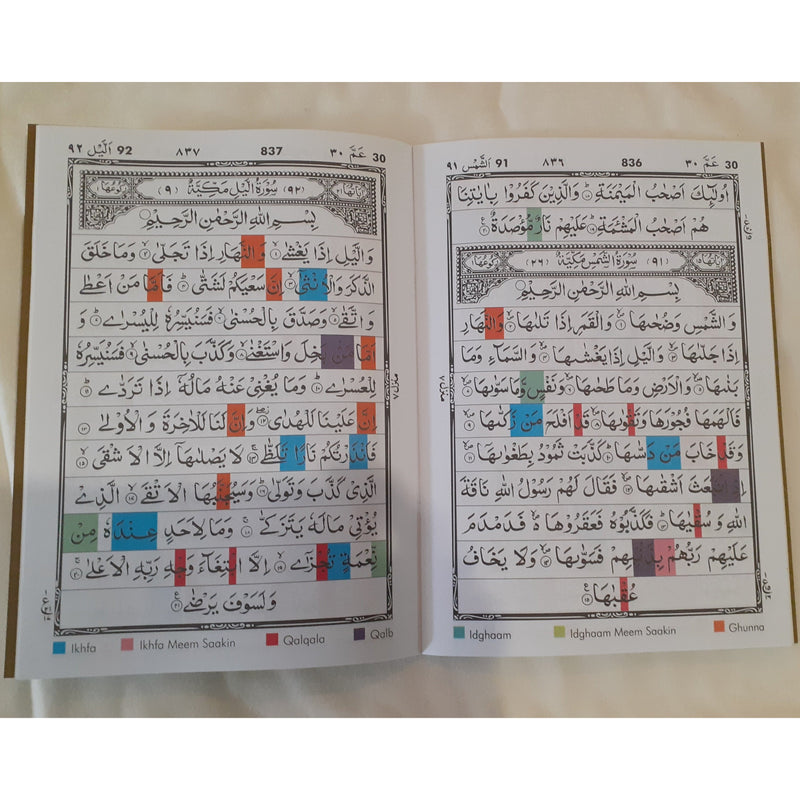 30 عَمَّ ٣٠ 836 ٨٣٦ 91 اَلشَّمْس ٩١
اُولٰٓئِكَ اَصْحٰبُ الْمَيْمَنَةِ ۱۸ وَالَّذِيْنَ كَفَرُوْا بِاٰيٰتِنَا
هُمْ اَصْحٰبُ الْمَشْـَٔمَةِ ۱۹ عَلَيْهِمْ نَارٌ مُّؤْصَدَةٌ ۲۰
(٩١) سُوْرَةُ الشَّمْسِ مَكِّيَّةٌ (٢٦)
بِسْمِ اللهِ الرَّحْمٰنِ الرَّحِيْمِ
وَالشَّمْسِ وَضُحٰىهَا ۱ وَالْقَمَرِ اِذَا تَلٰىهَا ۲ وَالنَّهَارِ
اِذَا جَلّٰىهَا ۳ وَالَّيْلِ اِذَا يَغْشٰىهَا ۴ وَالسَّمَآءِ وَمَا
بَنٰىهَا ۵ وَالْاَرْضِ وَمَا طَحٰىهَا ۶ وَنَفْسٍ وَّمَا سَوّٰىهَا ۷
فَاَلْهَمَهَا فُجُوْرَهَا وَتَقْوٰىهَا ۸ قَدْ اَفْلَحَ مَنْ زَكّٰىهَا ۹
وَقَدْ خَابَ مَنْ دَسّٰىهَا ۱۰ كَذَّبَتْ ثَمُوْدُ بِطَغْوٰىهَا ۱۱
اِذِ انْۢبَعَثَ اَشْقٰىهَا ۱۲ فَقَالَ لَهُمْ رَسُوْلُ اللهِ نَاقَةَ
اللهِ وَسُقْيٰهَا ۱۳ فَكَذَّبُوْهُ فَعَقَرُوْهَا فَدَمْدَمَ
عَلَيْهِمْ رَبُّهُمْ بِذَنْۢبِهِمْ فَسَوّٰىهَا ۱۴ وَلَا يَخَافُ
عُقْبٰهَا ۱۵
Idghaam Idghaam Meem Saakin Ghunna
30 عَمَّ ٣٠ 837 ٨٣٧ 92 اَلَّيْل ٩٢
(٩٢) سُوْرَةُ الَّيْلِ مَكِّيَّةٌ (٩)
بِسْمِ اللهِ الرَّحْمٰنِ الرَّحِيْمِ
وَالَّيْلِ اِذَا يَغْشٰى ۱ وَالنَّهَارِ اِذَا تَجَلّٰى ۲ وَمَا خَلَقَ
الذَّكَرَ وَالْاُنْثٰٓى ۳ اِنَّ سَعْيَكُمْ لَشَتّٰى ۴ فَاَمَّا مَنْ اَعْطٰى
وَاتَّقٰى ۵ وَصَدَّقَ بِالْحُسْنٰى ۶ فَسَنُيَسِّرُهٗ لِلْيُسْرٰى ۷ وَ
اَمَّا مَنْۢ بَخِلَ وَاسْتَغْنٰى ۸ وَكَذَّبَ بِالْحُسْنٰى ۹ فَسَنُيَسِّرُهٗ
لِلْعُسْرٰى ۱۰ وَمَا يُغْنِيْ عَنْهُ مَالُهٗٓ اِذَا تَرَدّٰى ۱۱
اِنَّ عَلَيْنَا لَلْهُدٰى ۱۲ وَاِنَّ لَنَا لَلْاٰخِرَةَ وَالْاُوْلٰى ۱۳
فَاَنْذَرْتُكُمْ نَارًا تَلَظّٰى ۱۴ لَا يَصْلٰىهَآ اِلَّا الْاَشْقَى ۱۵
الَّذِيْ كَذَّبَ وَتَوَلّٰى ۱۶ وَسَيُجَنَّبُهَا الْاَتْقَى ۱۷ الَّذِيْ
يُؤْتِيْ مَالَهٗ يَتَزَكّٰى ۱۸ وَمَا لِاَحَدٍ عِنْدَهٗ مِنْ
نِّعْمَةٍ تُجْزٰٓى ۱۹ اِلَّا ابْتِغَآءَ وَجْهِ رَبِّهِ الْاَعْلٰى ۲۰
وَلَسَوْفَ يَرْضٰى ۲۱
Ikhfa Ikhfa Meem Saakin Qalqala Qalb